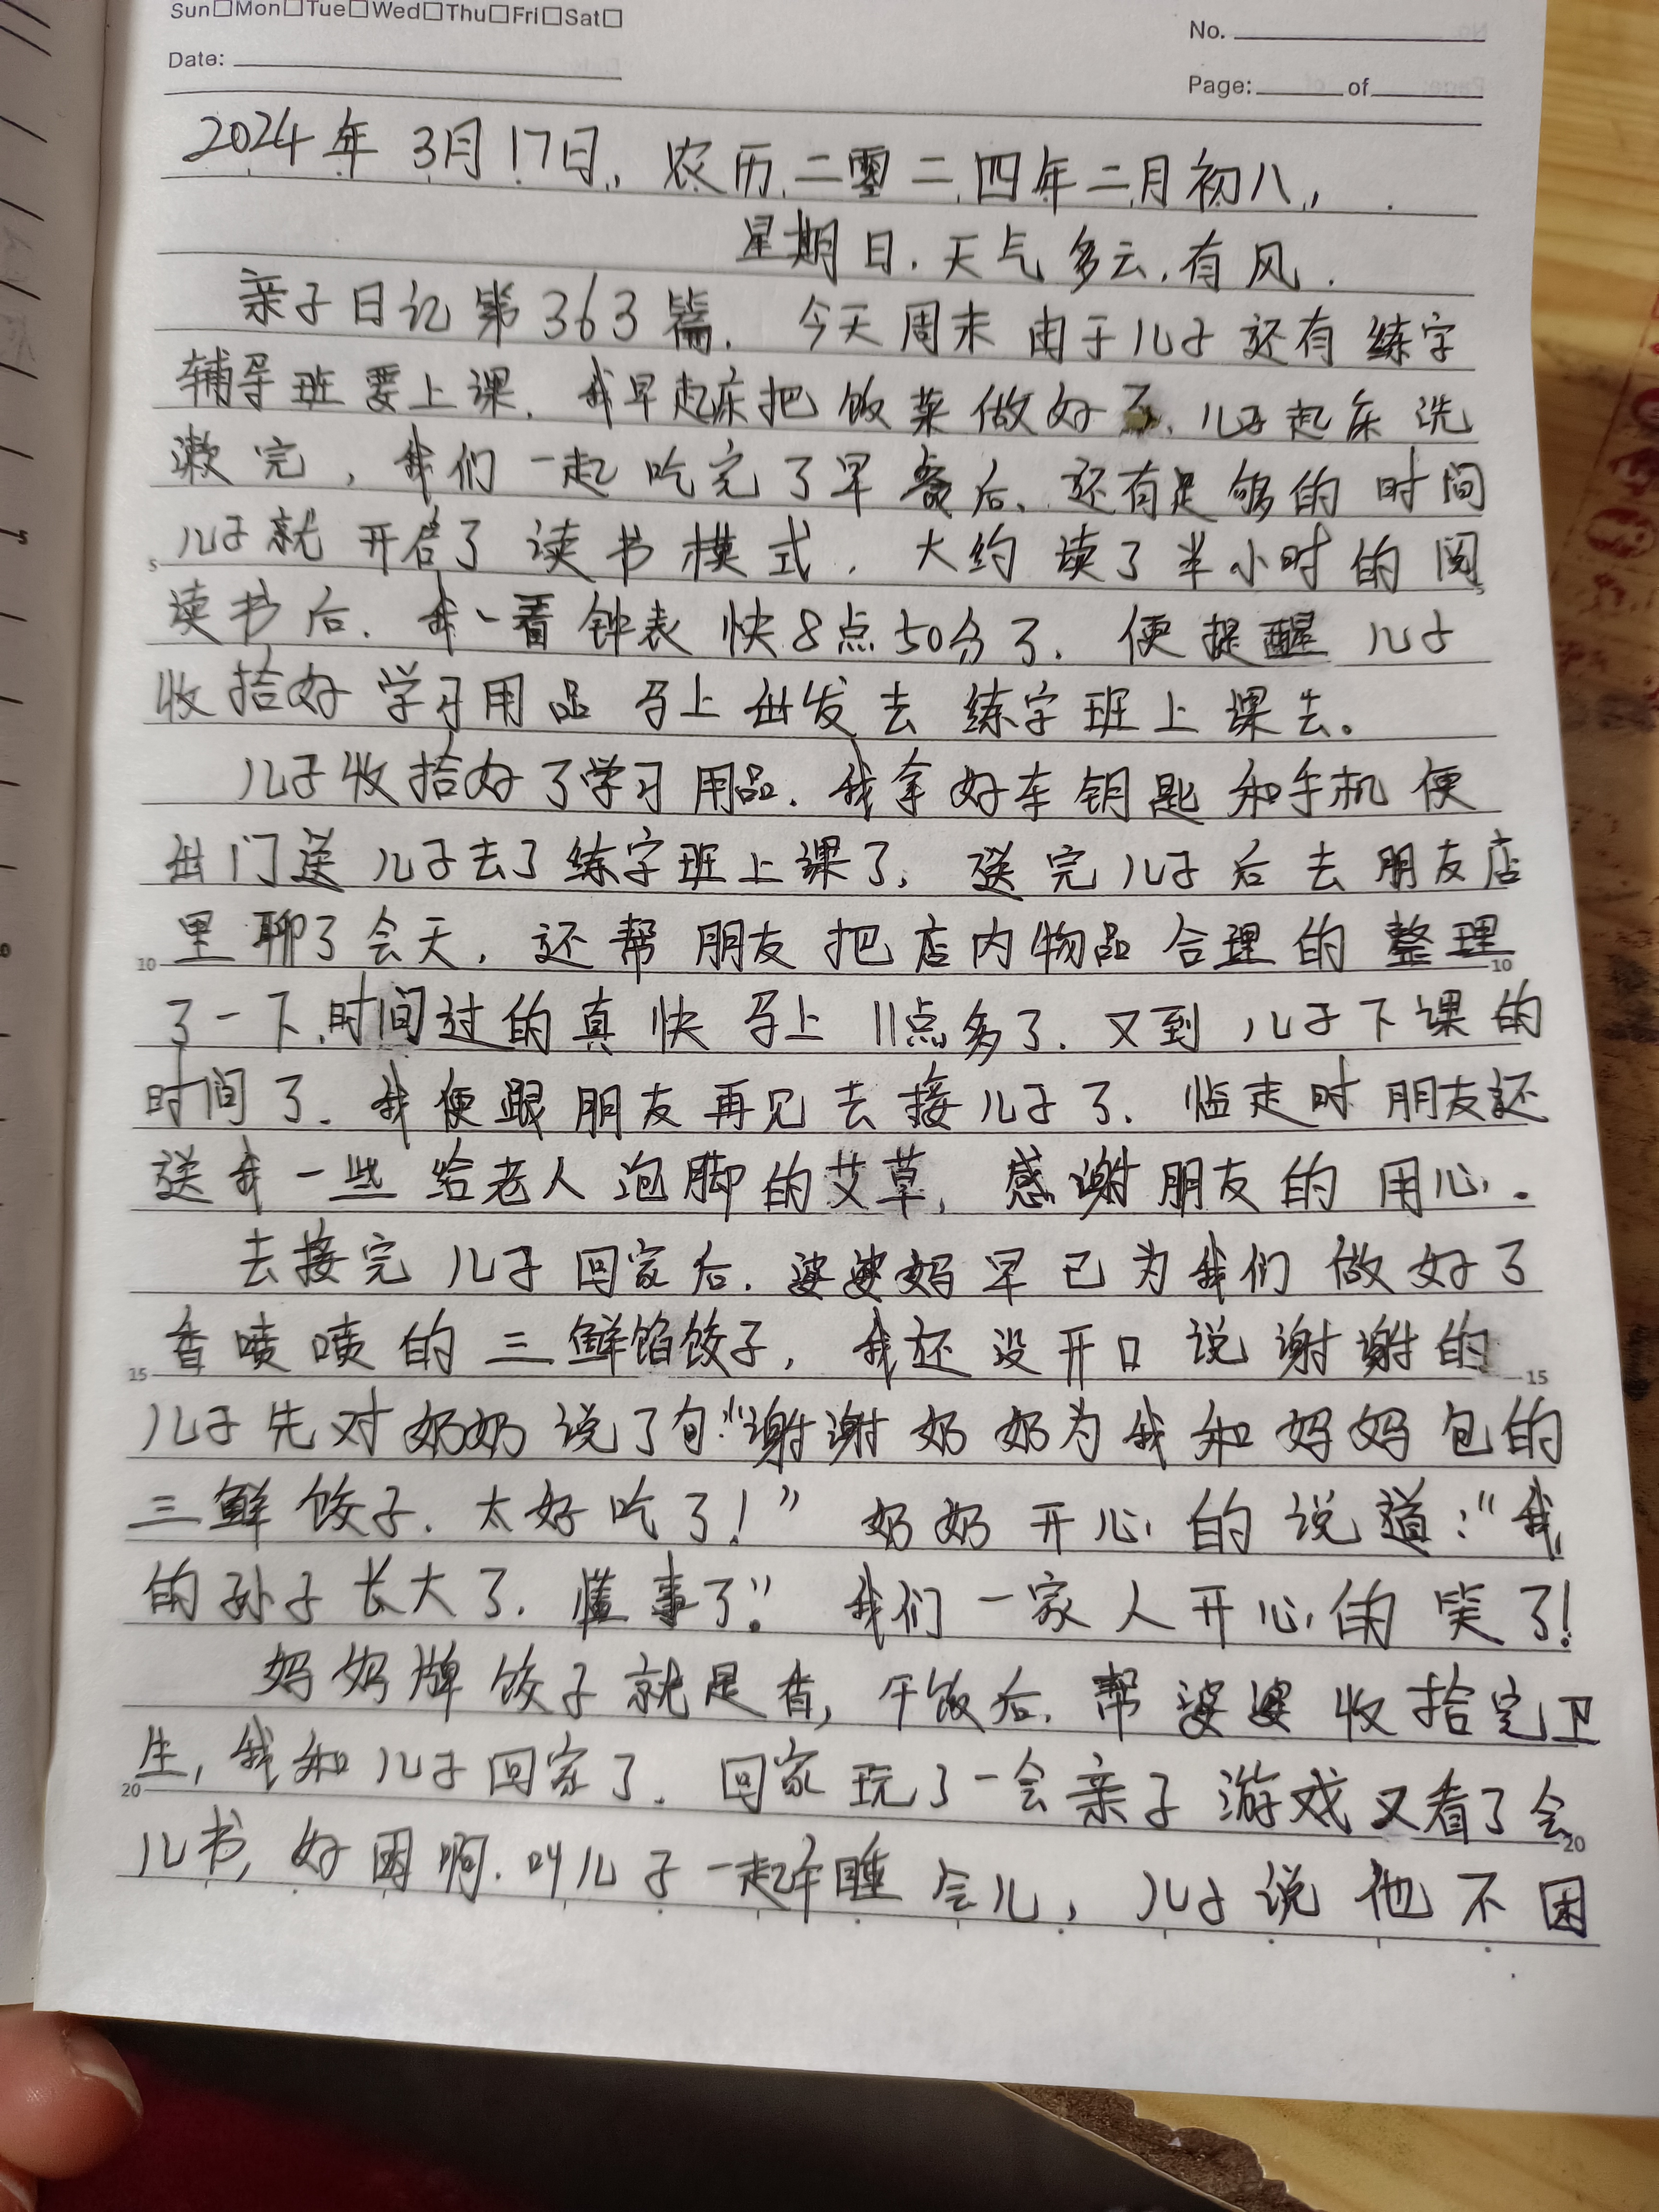 Sun□Mon□Tue□Wed□Thu□Fri□Sat□
No.
Date:
Page: of
2024年3月17日,农历二零二四年二月初八,
星期日.天气多云.有风.
亲子日记第363篇. 今天周末由于儿子还有练字
辅导班要上课.我早起床把饭菜做好了.儿子起床洗
漱完,我们一起吃完了早餐后.还有足够的时间
5 儿子就开启了读书模式.大约读了半小时的阅 5
读书后.我一看钟表快8点50分了.便提醒儿子
收拾好学习用品马上出发去练字班上课去。
儿子收拾好了学习用品.我拿好车钥匙和手机便
出门送儿子去了练字班上课了.送完儿子后去朋友店
10 里聊了会天.还帮朋友把店内物品合理的整理 10
了一下.时间过的真快马上11点多了.又到儿子下课的
时间了.我便跟朋友再见去接儿子了.临走时朋友还
送我一些给老人泡脚的艾草,感谢朋友的用心.
去接完儿子回家后.婆婆妈早已为我们做好了
15 香喷喷的三鲜馅饺子,我还没开口说谢谢的 15
儿子先对奶奶说了句:“谢谢奶奶为我和妈妈包的
三鲜饺子.太好吃了!”奶奶开心的说道:“我
的孙子长大了.懂事了”。我们一家人开心的笑了!
妈妈牌饺子就是香,午饭后.帮婆婆收拾完卫
20 生,我和儿子回家了.回家玩了一会亲子游戏又看了会 20
儿书,好困啊.叫儿子一起午睡会儿,儿子说他不困